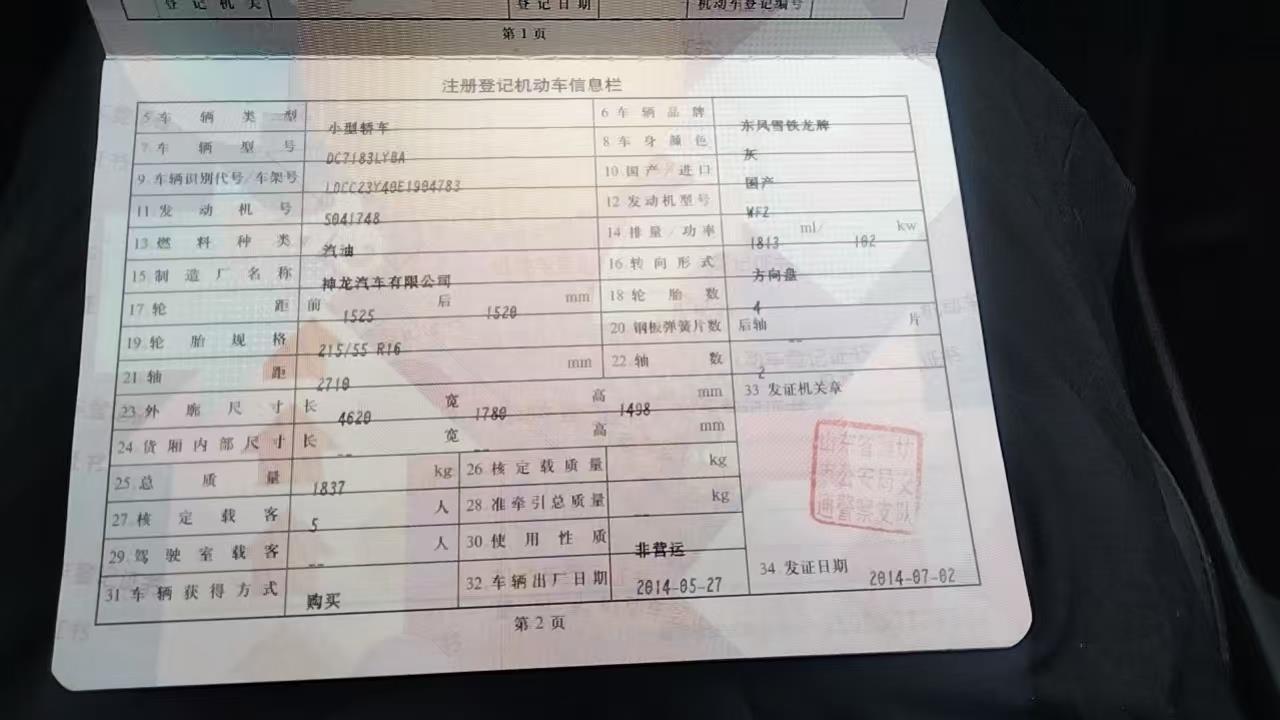 登记机关 登记日期 机动车登记编号
第1页
注册登记机动车信息栏
5.车辆类型 小型轿车 6.车辆品牌 东风雪铁龙牌
7.车辆型号 DC7183LYBA 8.车身颜色 灰
9.车辆识别代号/车架号 LDCC23Y40E1994783 10.国产/进口 国产
11.发动机号 5041748 12.发动机型号 WFZ
13.燃料种类 汽油 14.排量/功率 1813 ml/ 102 kw
15.制造厂名称 神龙汽车有限公司 16.转向形式 方向盘
17.轮距 前 1525 后 1520 mm 18.轮胎数 4
19.轮胎规格 215/55 R16 20.钢板弹簧片数 后轴 -- 片
21.轴距 2710 mm 22.轴数 2
23.外廓尺寸 长 4620 宽 1780 高 1498 mm 33.发证机关章
24.货厢内部尺寸 长 -- 宽 -- 高 mm
25.总质量 1837 kg 26.核定载质量 kg
27.核定载客 5 人 28.准牵引总质量 -- kg
29.驾驶室载客 -- 人 30.使用性质 非营运
31.车辆获得方式 购买 32.车辆出厂日期 2014-05-27 34.发证日期 2014-07-02
山东省潍坊
市公安局交
通警察支队
第2页